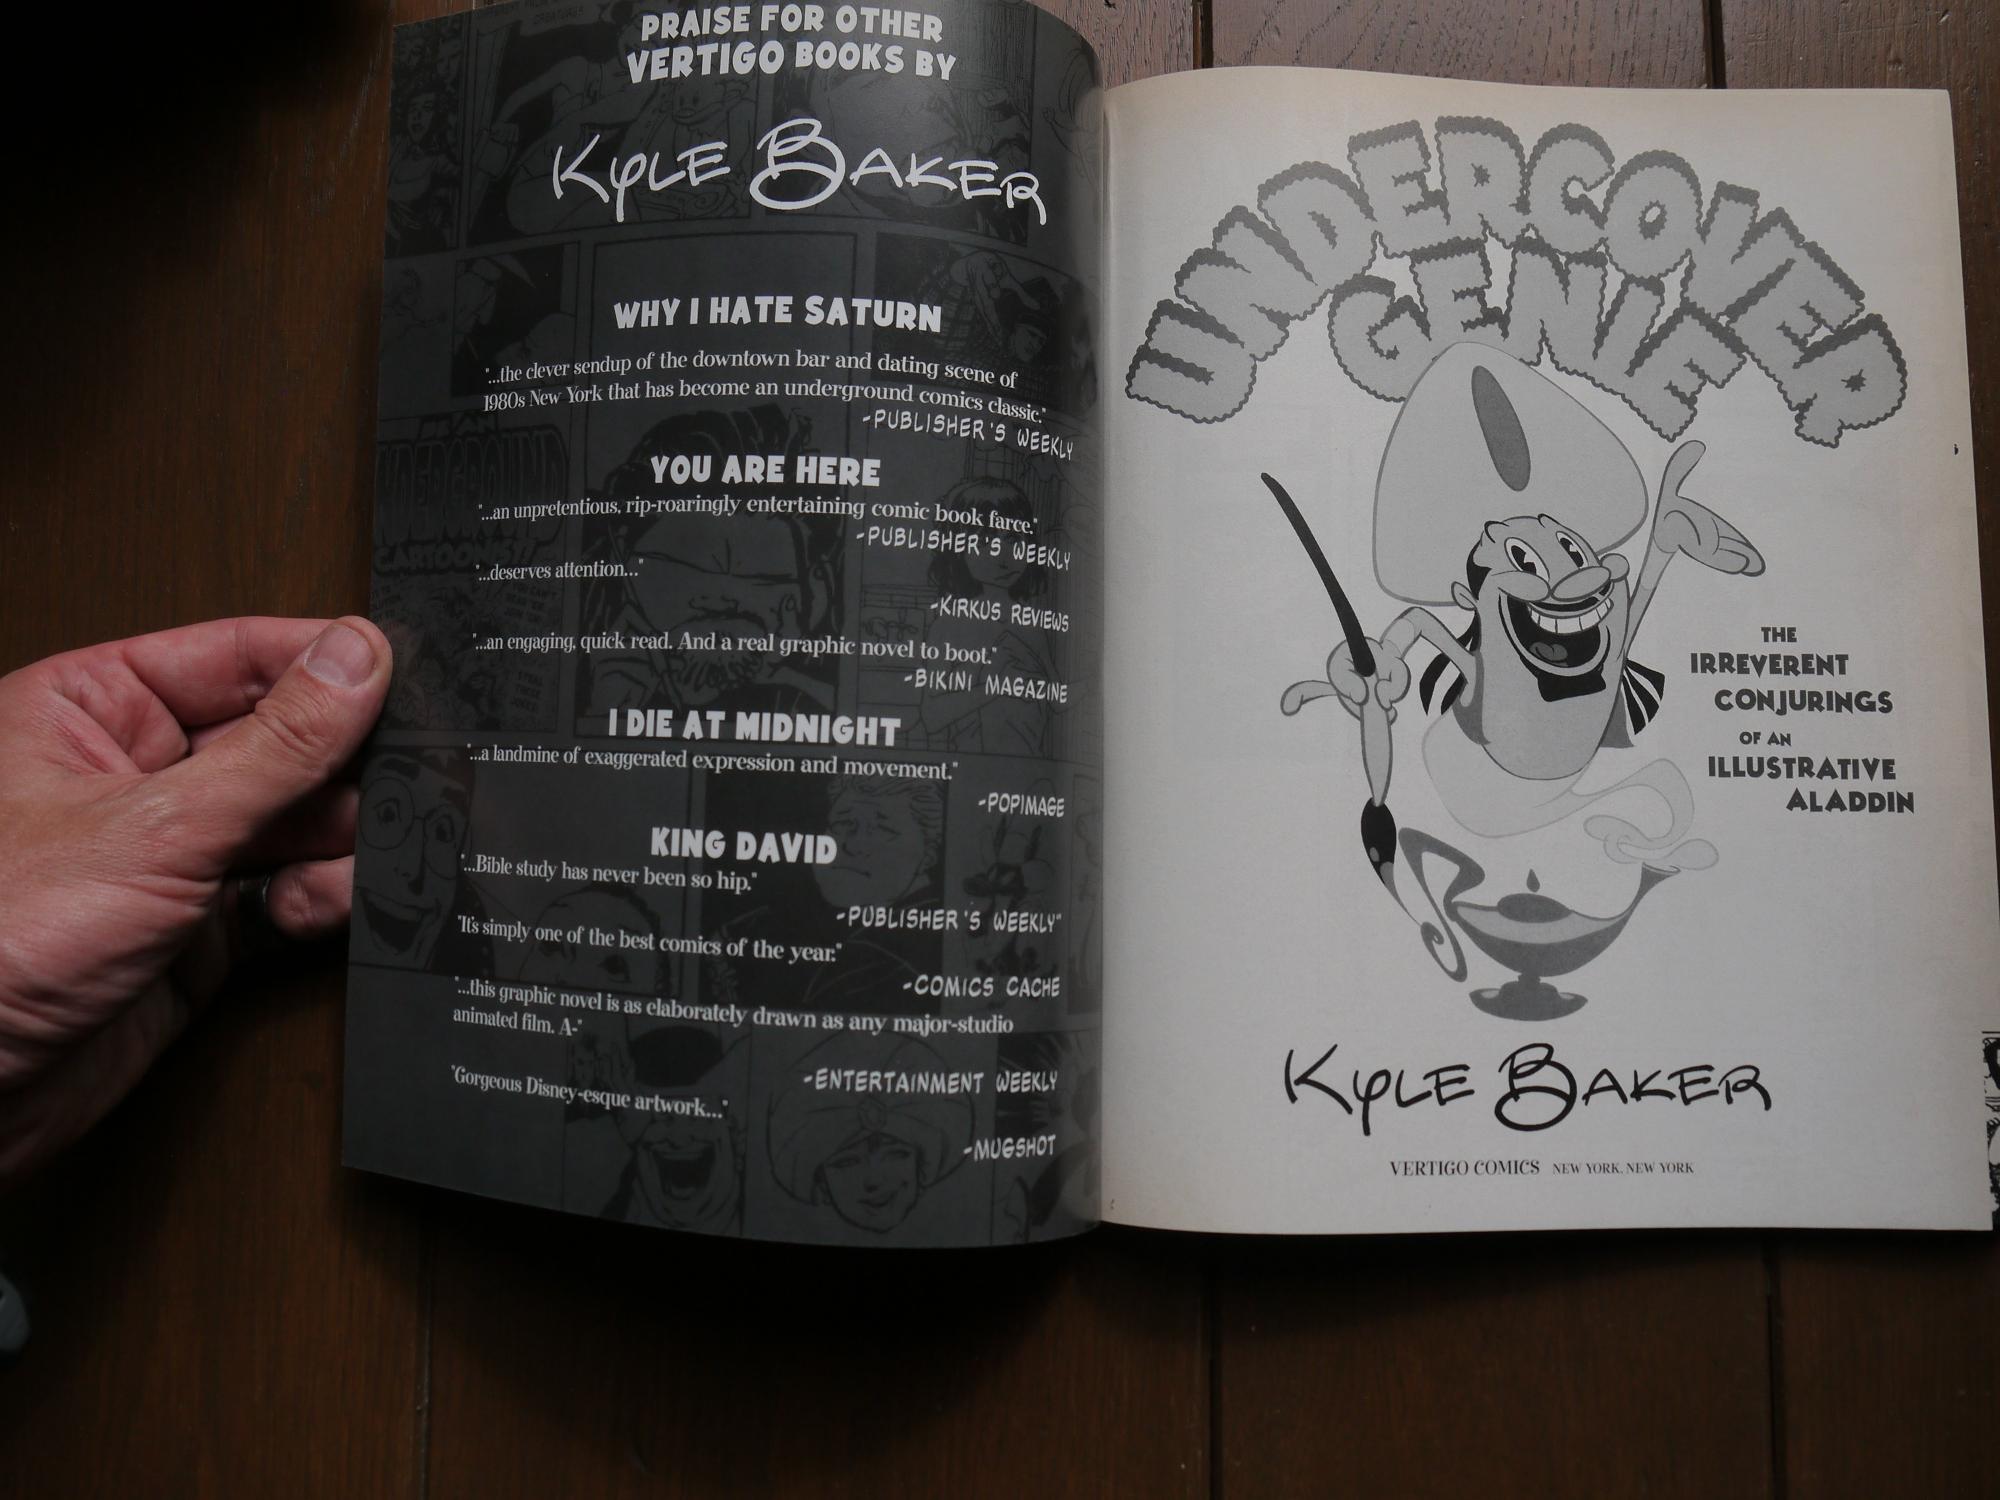 PRAISE FOR OTHER
VERTIGO BOOKS BY
KYLE BAKER
WHY I HATE SATURN
"...the clever sendup of the downtown bar and dating scene of
1980s New York that has become an underground comics classic."
-PUBLISHER'S WEEKLY
YOU ARE HERE
"...an unpretentious, rip-roaringly entertaining comic book farce."
-PUBLISHER'S WEEKLY
"...deserves attention..."
-KIRKUS REVIEWS
"...an engaging, quick read. And a real graphic novel to boot."
-BIKINI MAGAZINE
I DIE AT MIDNIGHT
"...a landmine of exaggerated expression and movement."
-POPIMAGE
KING DAVID
"...Bible study has never been so hip."
-PUBLISHER'S WEEKLY"
"It's simply one of the best comics of the year."
-COMICS CACHE
"...this graphic novel is as elaborately drawn as any major-studio
animated film. A-"
-ENTERTAINMENT WEEKLY
"Gorgeous Disney-esque artwork..."
-MUGSHOT
UNDERGROUND
CARTOONIST!
UNDERCOVER
GENIE
THE
IRREVERENT
CONJURINGS
OF AN
ILLUSTRATIVE
ALADDIN
KYLE BAKER
VERTIGO COMICS NEW YORK, NEW YORK